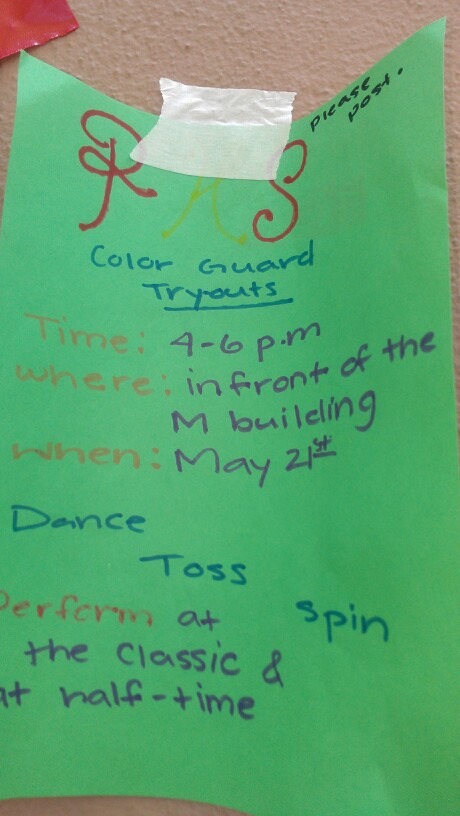 please
post.
R H S
Color Guard
Tryouts
Time: 4-6 p.m
where: in front of the
M building
when: May 21st
Dance
Toss
Spin
Perform at
the classic &
at half-time